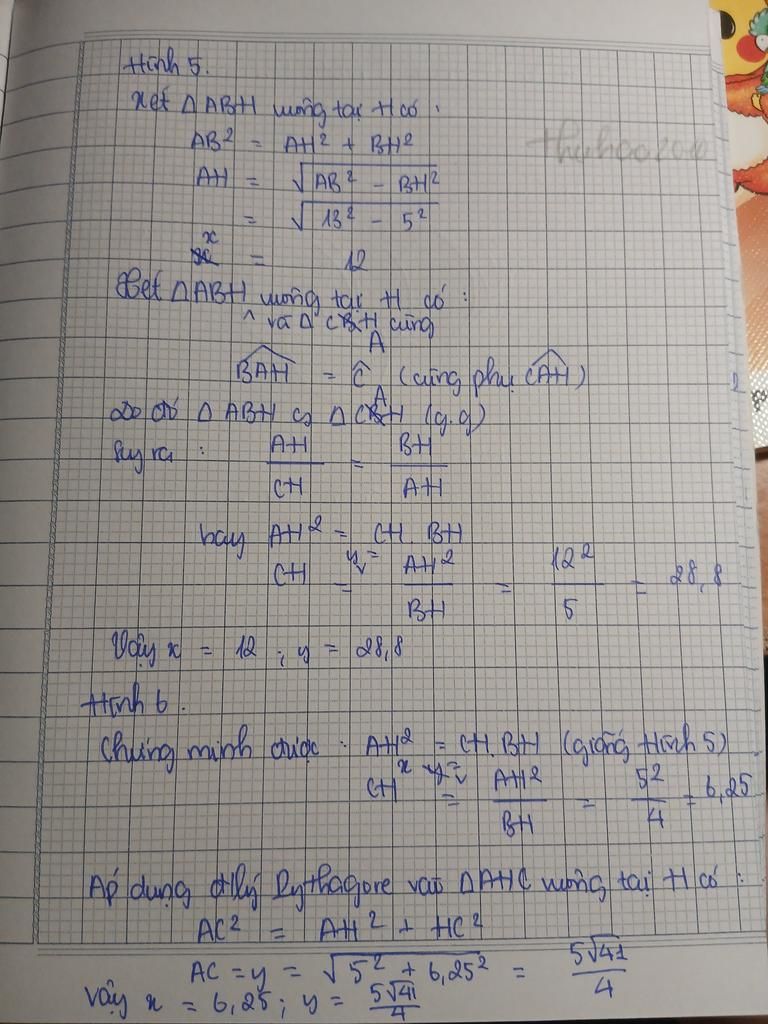 Hình 5.
Xét △ABH vuông tại H có :
AB² = AH² + BH²
AH = √AB² - BH²
= √13² - 5²
x = 12
Xét △ABH vuông tại H có :
^ và △ CAH cũng
BAH = Ĉ (cùng phụ CAH)
Do đó △ABH ∽ △CAH (g.g)
Suy ra : AH/CH = BH/AH
hay AH² = CH. BH
CH = y = AH²/BH = 12²/5 = 28,8
Vậy x = 12 ; y = 28,8
Hình 6.
Chứng minh được : AH² = CH. BH (giống Hình 5)
CH x = AH²/BH = 5²/4 = 6,25
Áp dụng đlý Pythagore vào △AHC vuông tại H có :
AC² = AH² + HC²
AC = y = √5² + 6,25² = 5√41/4
Vậy x = 6,25 ; y = 5√41/4